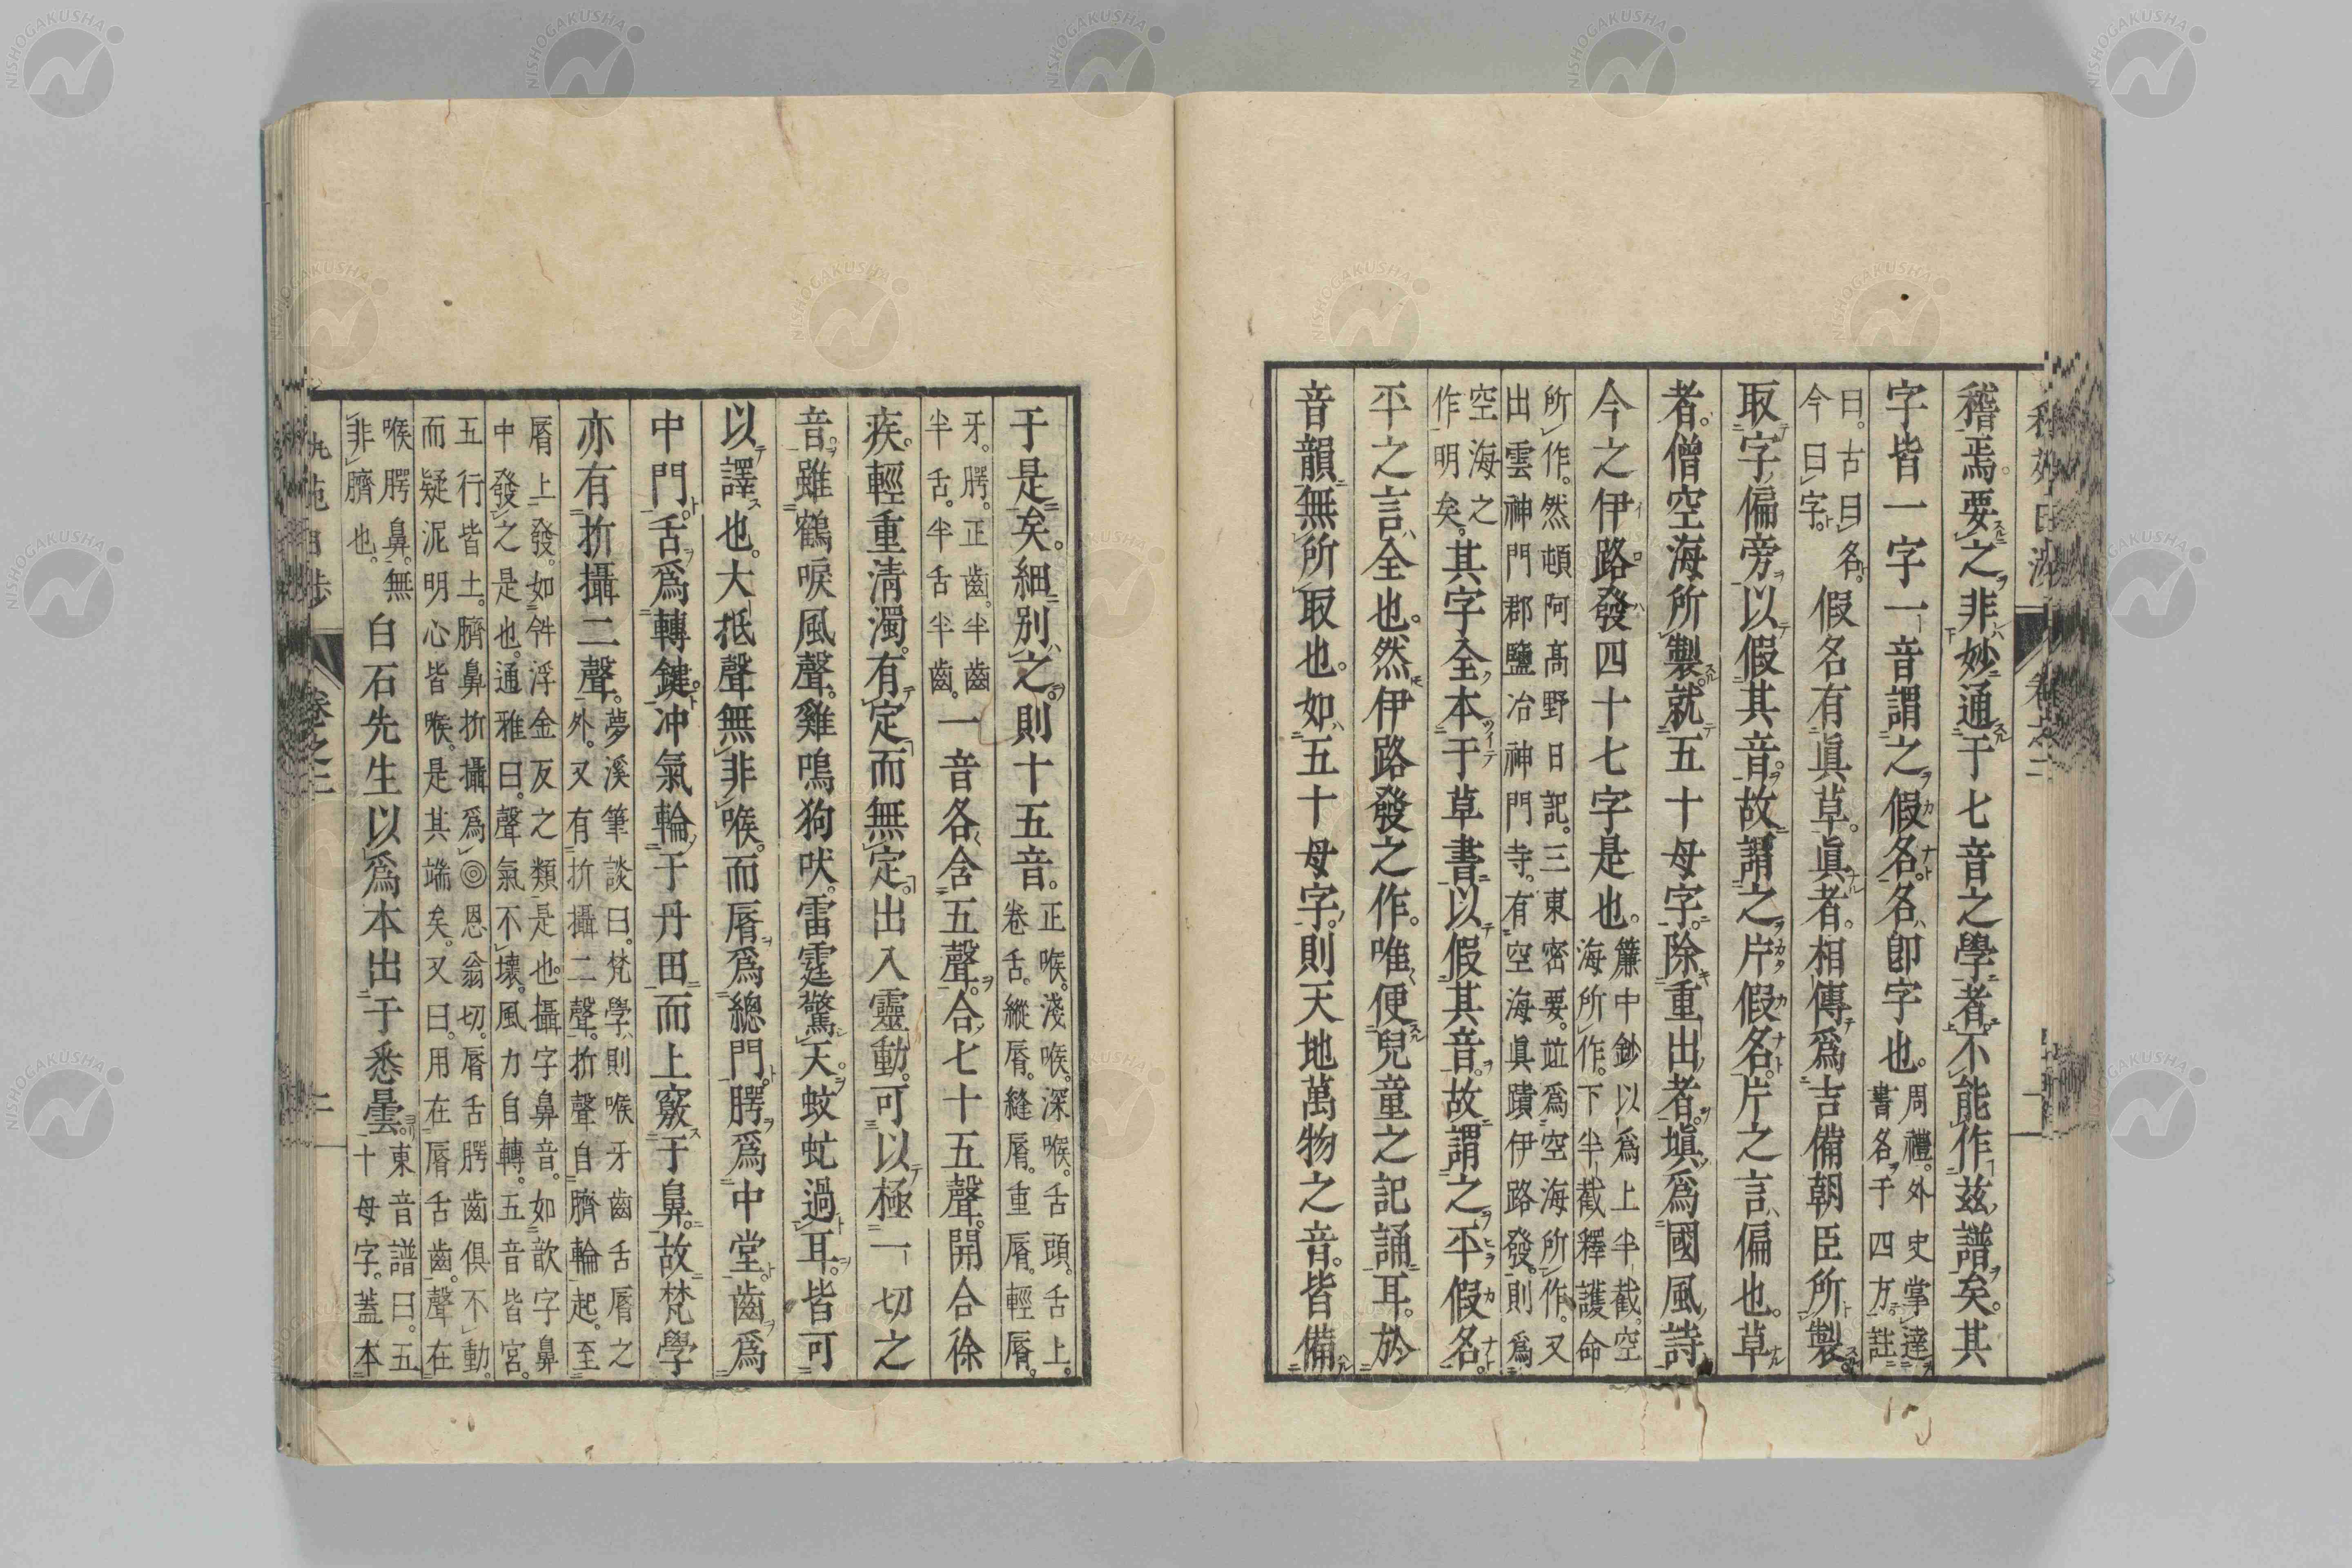 稽焉。要之非妙通于七音之學者不能作茲譜矣。其
字皆一字一音謂之假名。名即字也。周禮。外史掌達
書名于四方。註
曰。古曰名。
今曰字。假名有眞草。眞者。相傳爲吉備朝臣所製。
取字偏旁以假其音。故謂之片假名。片之言偏也。草
者。僧空海所製。就五十母字。除重出者。塡爲國風詩
今之伊路發四十七字是也。簾中鈔以爲上半截。空
海所作。下半截釋護命
所作。然頓阿高野日記。三東密要。竝爲空海所作。又
出雲神門郡鹽冶神門寺。有空海眞蹟伊路發。則爲
空海之
作明矣。其字全本于草書以假其音。故謂之平假名。
平之言全也。然伊路發之作。唯便兒童之記誦耳。於
音韻無所取也。如五十母字。則天地萬物之音。皆備
于是矣。細別之。則十五音。正喉。淺喉。深喉。舌頭。舌上。
卷舌。縱脣。縫脣。重脣。輕脣。
牙。腭。正齒。半齒
半舌。半舌半齒。一音各含五聲。合七十五聲。開合徐
疾。輕重淸濁。有定而無定。出入靈動。可以極一切之
音。雖鶴唳風聲。雞鳴狗吠。雷霆驚天。蚊虻過耳。皆可
以譯也。大抵聲無非喉。而脣爲總門。腭爲中堂。齒爲
中門。舌爲轉鍵。冲氣輪于丹田。而上竅于鼻。故梵學
亦有折攝二聲。夢溪筆談曰。梵學則喉牙齒舌脣之
外。又有折攝二聲。折聲自臍輪起。至
脣上發。如𨥨浮金反之類是也。攝字鼻音。如歆字鼻
中發之是也。通雅曰。聲氣不壞。風力自轉。五音皆宮。
五行皆土。臍鼻折攝爲◎恩翁切。脣舌腭齒俱不動。
而疑泥明心皆喉。是其端矣。又曰。用在脣舌齒。聲在
喉腭鼻。無
非臍也。白石先生以爲本出于悉曇。東音譜曰。五
十母字。蓋本
卷之二
二